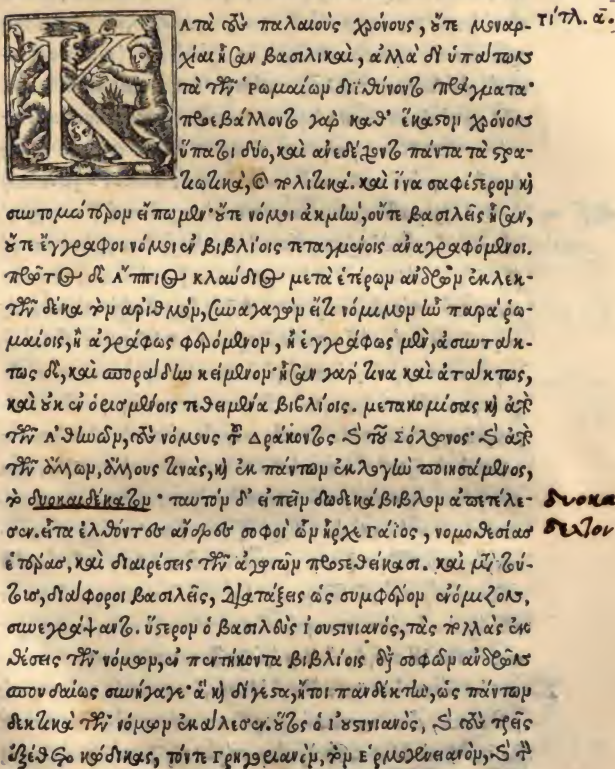 Κ ΑΤὰ τοὺς παλαιοὺς χρόνους, οὔτε μοναρ-
τίτλ. α̅.
χίαι ἦσαν βασιλικαὶ, ἀλλὰ δὴ ὕπατοι
τὰ τῶν Ῥωμαίων διϊθύνοντο πράγματα·
προεβάλλοντο γὰρ καθ' ἕκαστον χρόνον
ὕπατοι δύο, καὶ ἀνεδέχοντο πάντα τὰ στρα-
τιωτικὰ, καὶ πολιτικά. καὶ ἵνα σαφέστερον καὶ
συντομώτερον εἴπωμεν· οὔτε νόμοι ἀκμὴν, οὔτε βασιλεῖς ἦσαν,
οὔτε ἔγγραφοι νόμοι ἐν βιβλίοις τεταγμένοις ἀναγραφόμενοι.
πρῶτος δὲ Ἄππιος κλαύδιος μετὰ ἑτέρων ἀνδρῶν ἐκλεκ-
τῶν δέκα τὸν ἀριθμὸν, συναγαγὼν εἴτι νόμιμον ἦν παρὰ ῥω-
μαίοις, ἢ ἀγράφως φερόμενον, ἢ ἐγγράφως μὲν, ἀσυντάκ-
τως δὲ, καὶ σποράδην κείμενον· ἦσαν γάρ τινα καὶ ἀτάκτως,
καὶ οὐκ ἐν ὁρισμένοις τεθειμένα βιβλίοις. μετακομίσας καὶ ἀπὸ
τῶν Ἀθηνῶν, τοὺς νόμους τοῦ Δράκοντος καὶ τοῦ Σόλωνος· καὶ ἀπὸ
τῶν ἄλλων, ἄλλους τινὰς, καὶ ἐκ πάντων ἐκλογὴν ποιησάμενος,
τὸ δυοκαιδέκατον· ταυτὸν δ' εἰπεῖν δωδεκάβιβλον ἀπετέλε-
δυοκα
σεν. εἶτα ἐλθόντες ἄνδρες σοφοὶ ὧν ἦρχε Γαίος, νομοθεσίας
δελτον
ἑτέρας, καὶ διαιρέσεις τῶν ἀγωγῶν προστεθείκασι. καὶ μετὰ τού-
τους, διάφοροι βασιλεῖς, διατάξεις ὡς συμφέρον ἐνόμιζον,
συνεγράψαντο. ὕστερον ὁ βασιλεὺς ἰουστινιανὸς, τὰς πολλὰς ἐκ-
θέσεις τῶν νόμων, ἐν πεντήκοντα βιβλίοις διὰ σοφῶν ἀνδρῶν
σπουδαίως συνήγαγε· ἃ καὶ δίγεστα, ἤτοι πανδέκτην, ὡς πάντων
δεκτικὰ τῶν νόμων ἐκάλεσεν. οὗτος ὁ Ἰουστινιανὸς, καὶ τοὺς τρεῖς
ἐξέθετο κώδικας, τόντε Γρηγοριανὸν, τὸν Ἑρμογενειανὸν, καὶ τὸν